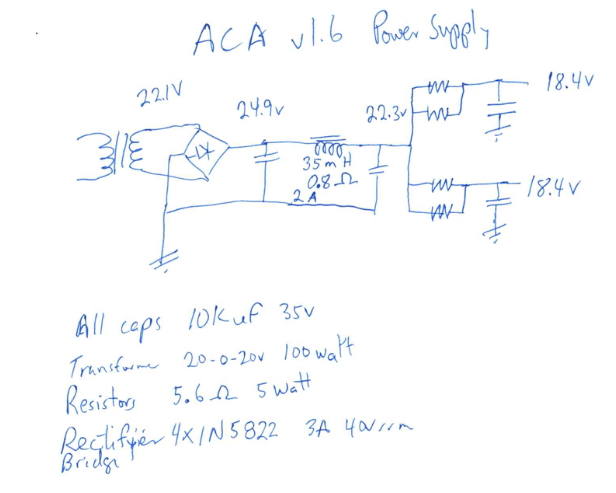 ACA v1.6 Power Supply
22.1V
24.9v
22.3v
18.4v
35mH
0.8Ω
2A
18.4v
All caps 10K uF 35v
Transforme 20-0-20v 100 watt
Resistors 5.6Ω 5 watt
Rectifier 4x1N5822 3A 40v
Bridge